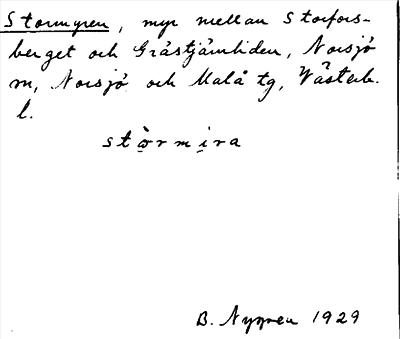 Stormyren, myr mellan Storfors-
berget och Gråstjärnliden, Norsjö
sn, Norsjö och Malå tg, Västerb.
l.
stòrmira
B. Nygren 1929